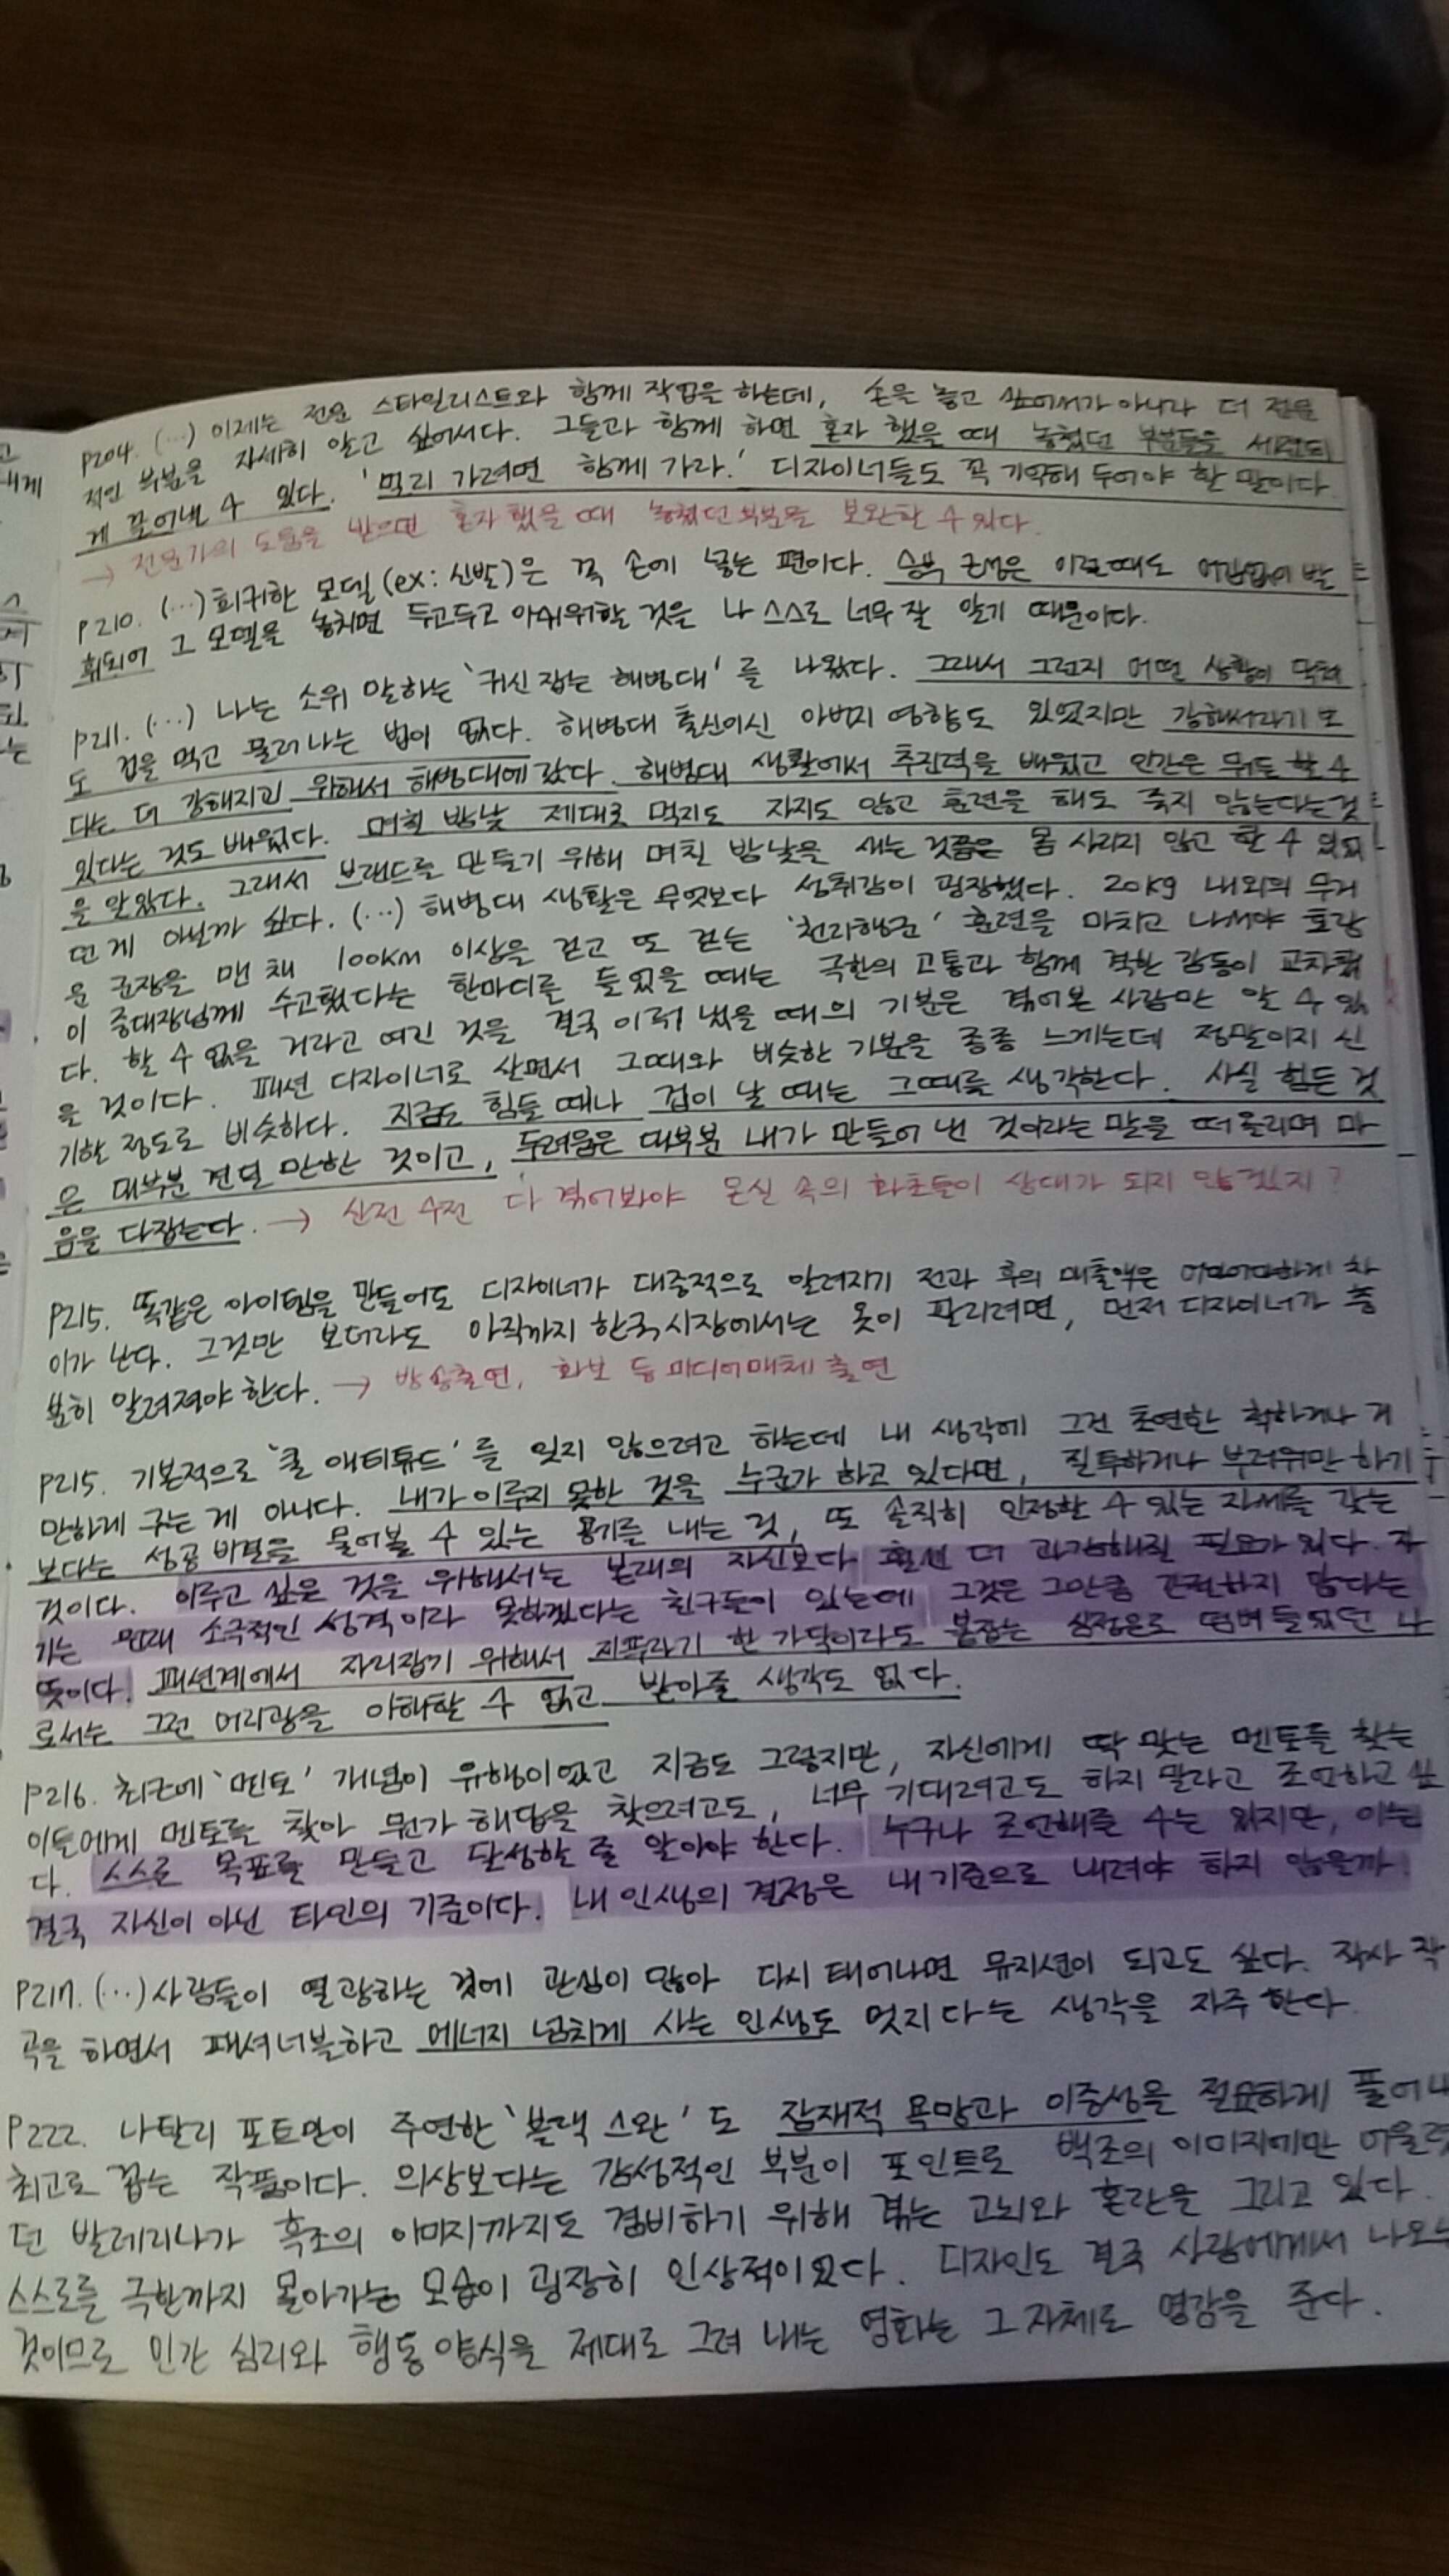 P204. (…) 이제는 전문 스타일리스트와 함께 작업을 하는데, 손을 놓고 싶어서가 아니라 더 전문
적인 부분을 자세히 알고 싶어서다. 그들과 함께 하면 혼자 했을 때 놓쳤던 부분들을 세련되
게 끌어낼 수 있다. '멀리 가려면 함께 가라.' 디자이너들도 꼭 기억해 두어야 할 말이다.
→ 전문가의 도움을 받으면 혼자 했을 때 놓쳤던 부분을 보완할 수 있다.
P210. (…) 희귀한 모델(ex: 신발)은 꼭 손에 넣는 편이다. 승부 근성은 이럴 때도 어김없이 발
휘되어 그 모델을 놓치면 두고두고 아쉬워할 것을 나 스스로 너무 잘 알기 때문이다.
P211. (…) 나는 소위 말하는 '귀신 잡는 해병대'를 나왔다. 그래서 그런지 어떤 상황이 닥쳐
도 겁을 먹고 물러나는 법이 없다. 해병대 출신이신 아버지 영향도 있었지만 강해서라기 보
다는 더 강해지기 위해서 해병대에 갔다. 해병대 생활에서 추진력을 배웠고 인간은 뭐든 할 수
있다는 것도 배웠다. 며칠 밤낮 제대로 먹지도 자지도 않고 훈련을 해도 죽지 않는다는 것
을 알았다. 그래서 브랜드를 만들기 위해 며친 밤낮을 새는 것쯤은 몸 사리지 않고 할 수 있었
던 게 아닐까 싶다. (…) 해병대 생활은 무엇보다 성취감이 굉장했다. 20kg 내외의 무거
운 군장을 맨 채 100km 이상을 걷고 또 걷는 '천리행군' 훈련을 마치고 나서야 호랑
이 중대장님께 수고했다는 한마디를 들었을 때는 극한의 고통과 함께 격한 감동이 교차했
다. 할 수 없을 거라고 여긴 것을 결국 이뤄 냈을 때의 기분은 겪어본 사람만 알 수 있
을 것이다. 패션 디자이너로 살면서 그때와 비슷한 기분을 종종 느끼는데 정말이지 신
기할 정도로 비슷하다. 지금도 힘들 때나 겁이 날 때는 그때를 생각한다. 사실 힘든 것
은 대부분 견딜 만한 것이고, 두려움은 대부분 내가 만들어 낸 것이라는 말을 떠올리며 마
음을 다잡는다. → 산전 수전 다 겪어봐야 온실 속의 화초들이 상대가 되지 않겠지?
P215. 똑같은 아이템을 만들어도 디자이너가 대중적으로 알려지기 전과 후의 매출액은 어마어마하게 차
이가 난다. 그것만 보더라도 아직까지 한국시장에서는 옷이 팔리려면, 먼저 디자이너가 충
분히 알려져야 한다. → 방송출연, 화보 등 미디어매체 출연
P215. 기본적으로 '쿨 애티튜드'를 잊지 않으려고 하는데 내 생각에 그건 초연한 척하거나 거
만하게 구는 게 아니다. 내가 이루지 못한 것을 누군가 하고 있다면, 질투하거나 부러워만 하기
보다는 성공 비결을 물어볼 수 있는 용기를 내는 것, 또 솔직히 인정할 수 있는 자세를 갖는
것이다. 이루고 싶은 것을 위해서는 본래의 자신보다 훨씬 더 과감해질 필요가 있다. 자
기는 원래 소극적인 성격이라 못하겠다는 친구들이 있는데 그것은 그만큼 간절하지 않다는
뜻이다. 패션계에서 자리잡기 위해서 지푸라기 한 가닥이라도 붙잡는 심정으로 덤벼들었던 나
로서는 그런 어리광을 이해할 수 없고 받아줄 생각도 없다.
P216. 최근에 '멘토' 개념이 유행이었고 지금도 그렇지만, 자신에게 딱 맞는 멘토를 찾는
이들에게 멘토를 찾아 뭔가 해답을 찾으려고도, 너무 기대려고도 하지 말라고 조언하고 싶
다. 스스로 목표를 만들고 달성할 줄 알아야 한다. 누구나 조언해줄 수는 있지만, 이는
결국 자신이 아닌 타인의 기준이다. 내 인생의 결정은 내 기준으로 내려야 하지 않을까.
P217. (…) 사람들이 열광하는 것에 관심이 많아 다시 태어나면 뮤지션이 되고도 싶다. 작사 작
곡을 하면서 패셔너블하고 에너지 넘치게 사는 인생도 멋지다는 생각을 자주 한다.
P222. 나탈리 포트만이 주연한 '블랙 스완'도 잠재적 욕망과 이중성을 절묘하게 풀어내
최고로 꼽는 작품이다. 의상보다는 감성적인 부분이 포인트로 백조의 이미지에만 어울렸
던 발레리나가 흑조의 이미지까지도 겸비하기 위해 겪는 고뇌와 혼란을 그리고 있다.
스스로를 극한까지 몰아가는 모습이 굉장히 인상적이었다. 디자인도 결국 사람에게서 나오는
것이므로 인간 심리와 행동 양식을 제대로 그려 내는 영화는 그 자체로 영감을 준다.